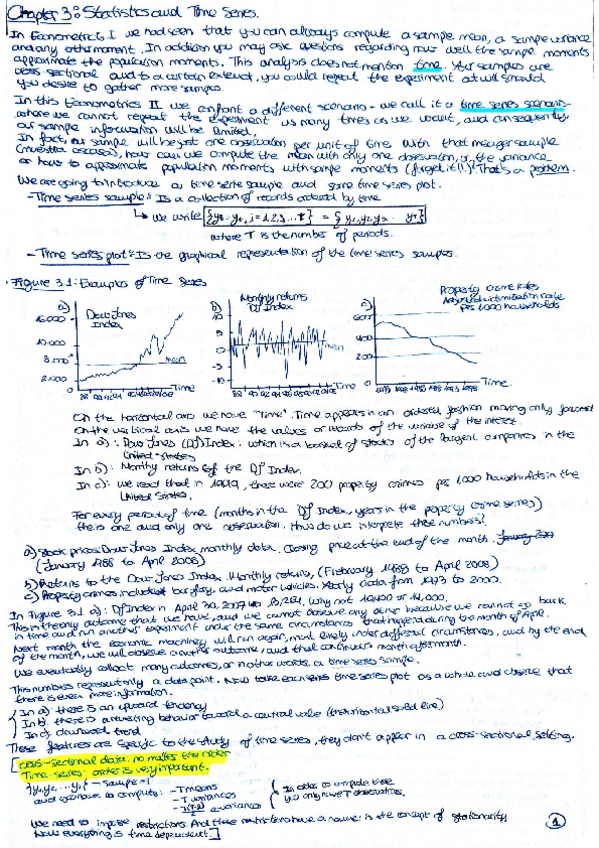 Chapter 3: Statistics and Time Series.
In Econometrics I we had seen that you can always compute a sample mean, a sample variance
and any other moment. In addition you may ask questions regarding how well the sample moments
approximate the population moments. This analysis does not mention time. Our samples are
cross sectional and to a certain extent, you could repeat the experiment at will should
you desire to gather more samples.
In this Econometrics II we confront a different scenario - we call it a time series scenario -
where we cannot repeat the experiment as many times as we want, and consequently,
our sample information will be limited.
In fact, our sample will be just one observation per unit of time. With that meager sample
how can we compute the mean with only one observation, or the variance
or how to approximate population moments with sample moments (forget it!!) That's a problem.
We are going to introduce a time series sample and some time series plot.
- Time series sample: Is a collection of records ordered by time
↳ We write
where T is the number of periods.
- Time series plot: Is the graphical representation of the time series samples.
· Figure 3.1: Examples of Time Series
a) Dow Jones Index
16.000
10.000
2.000
mean
Time
b) Monthly returns DJ Index
10
5
0
-5
-10
mean
Time
c) Property crime rates
per 1,000 households
600
400
200
Time
On the horizontal axis we have "Time". Time appears in an ordered fashion moving only forward
On the vertical axis we have the values or records of the variable of the interest.
In a): Dow Jones (DJ) Index: which is a basket of stocks of the largest companies in the
United States
In b): Monthly returns of the DJ Index.
In c): we read that in there were 200 property crimes per 1,000 households in the
United States.
For every period of time (months in the DJ Index, years in the property crime series)
there is one and only one observation. How do we interpret these numbers?
a) Stock prices Dow Jones Index monthly data. Closing price at the end of the month.
(January 1988 to April 2008)
b) Returns to the Dow Jones Index. Monthly returns, (February 1988 to April 2008)
c) Property crimes included burglary and motor vehicles. Yearly data from 1973 to 2000.
In Figure 3.1 a): DJ Index in April 30, 2007 was Why not 10,400 or 14,000,
This is the only outcome that we have, and we cannot observe any other because we cannot go back
in time and run another experiment under the same circumstances that happened during the month of April.
Next month the economic machinery will run again, most likely under different circumstances, and by the end
of the month, we will observe another outcome, and that continues month after month.
We eventually collect many outcomes, or in other words, a time series sample.
This numbers represent only a data point. Now take each series time series plot as a whole and observe that
there is even more information.
In a) there is an upward tendency
In b) there is a reverting behavior toward a central value (the horizontal solid line)
In c) downward trend
These features are specific to the study of time series, they don't appear in a cross-sectional setting.
[cross-sectional data: no matter the order
Time-series: order is very important.
- sample = 1
and we have to compute: - T means
- T variances
- covariances
In order to compute these
you only have T observations.
We need to impose restrictions. And these restrictions have a name: is the concept of stationarity
Now everything is time dependent.]
1